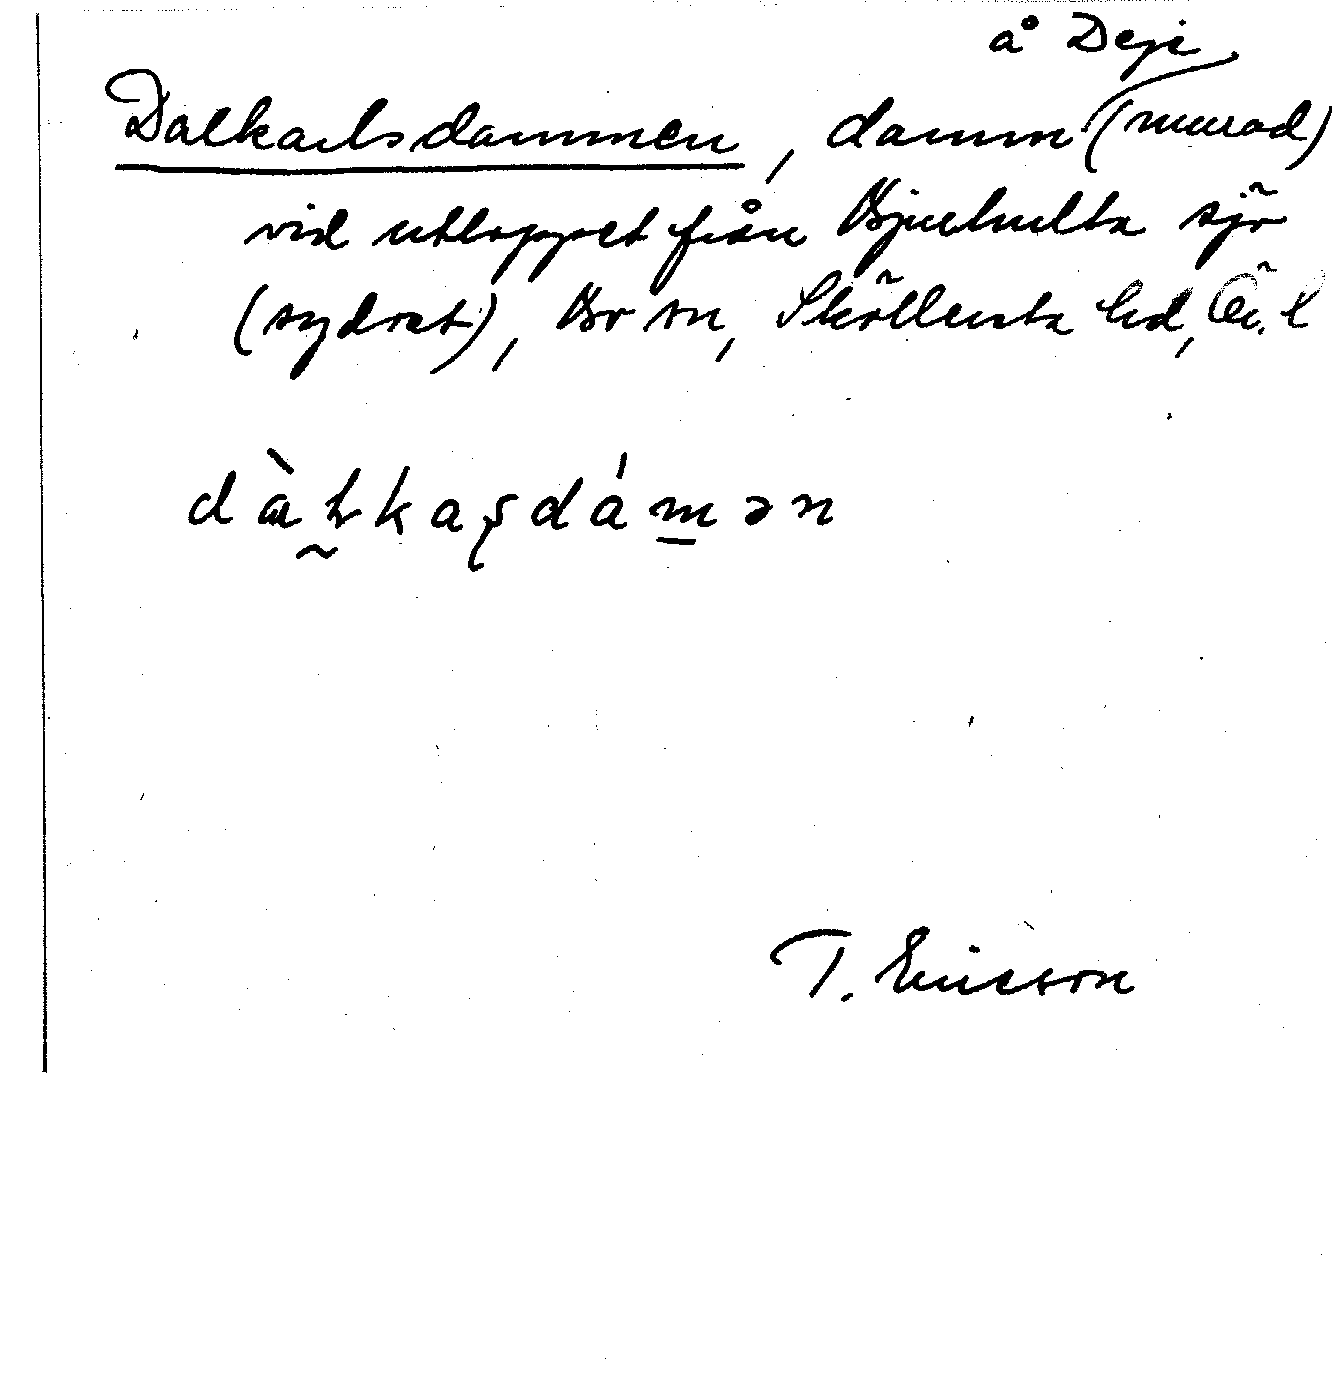 å Deje
Dalkarlsdammen, damm (murad)
vid utloppet från Bjurhulta sjö
(sydost), Bo sn, Sköllersta hd, Ör. l
dàɫkaʂdámən
T. Ericson